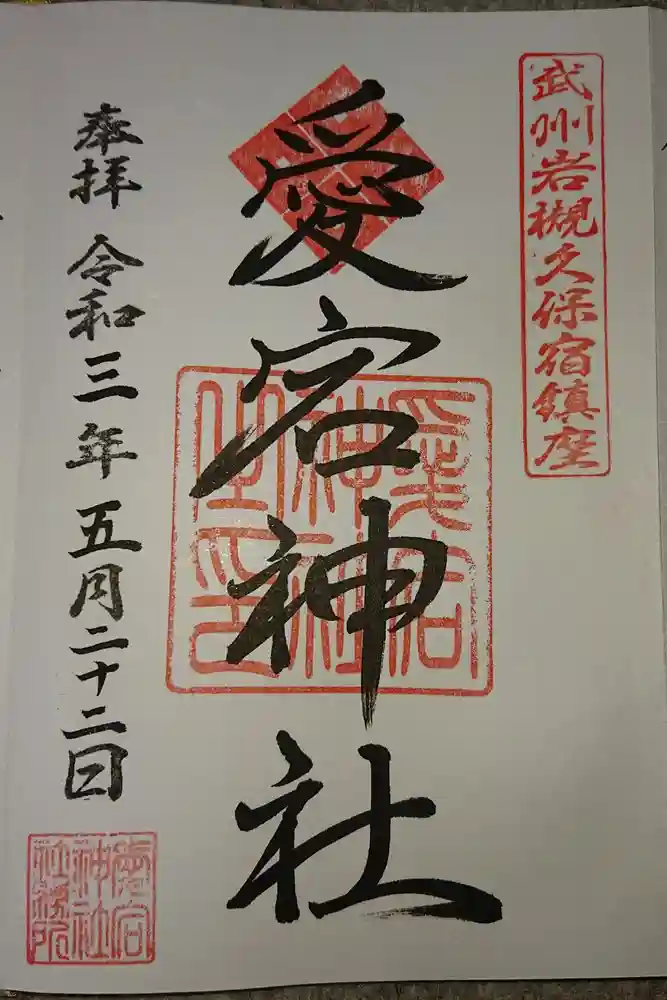 武州岩槻久保宿鎮座
愛宕神社
愛宕神社之印
奉拝 令和三年五月二十二日
愛宕神社社務所